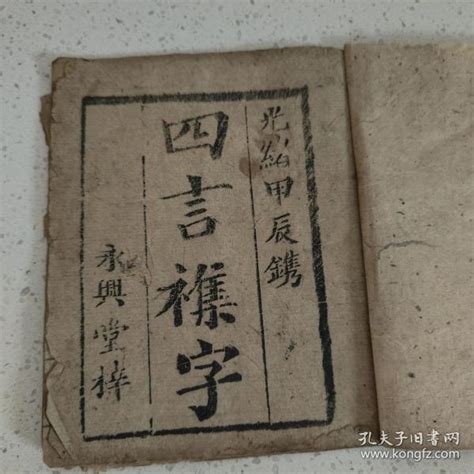 光緒甲辰鐫
四言襍字
永興堂梓
孔夫子旧书网
www.kongfz.com